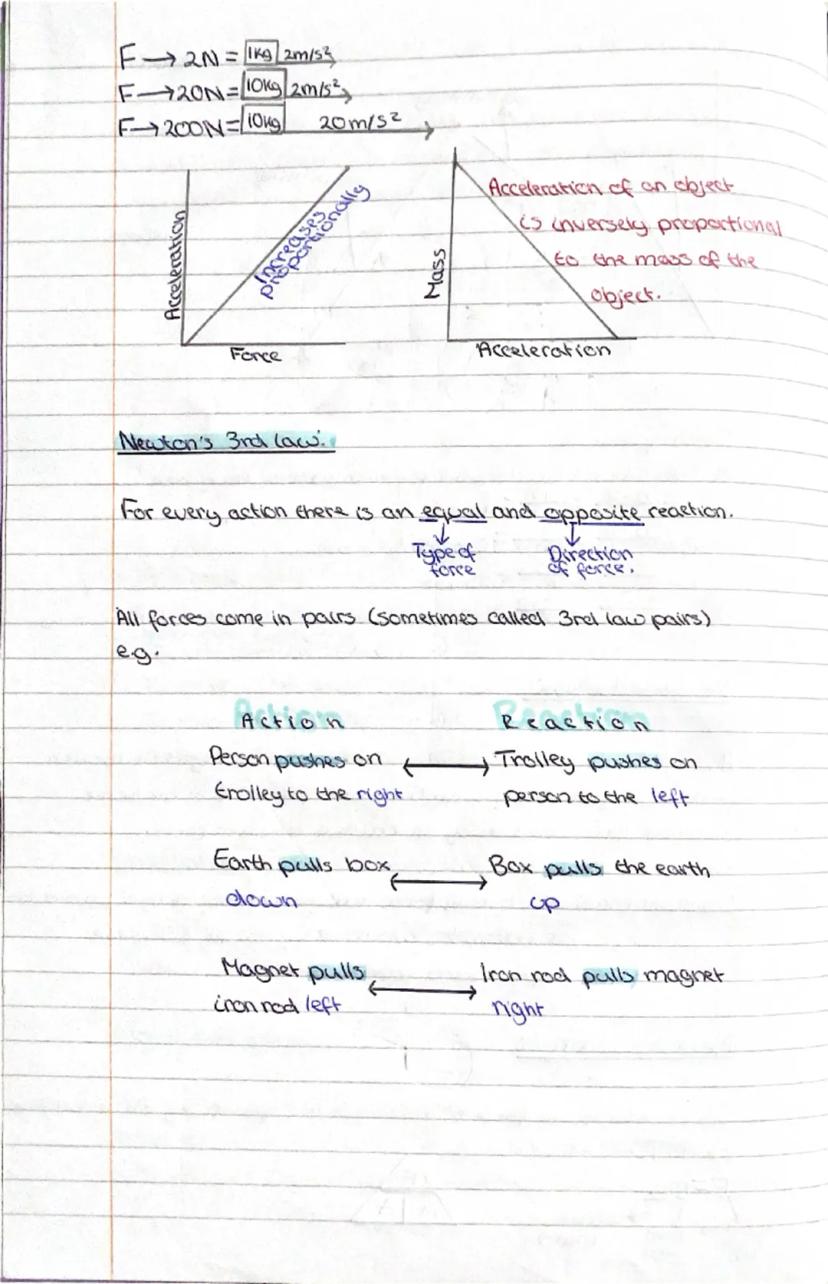 F → 2N = 1kg 2m/s²
F → 20N = 10kg 2m/s²
F → 200N = 10kg 20m/s²
Acceleration
Increases
proportionally
Force
Mass
Acceleration of an object
is inversely proportional
to the mass of the
object.
Acceleration
Newton's 3rd law:
For every action there is an equal and opposite reaction.
Type of
force
Direction
of force.
All forces come in pairs (sometimes called 3rd law pairs)
e.g.
Action Reaction
Person pushes on ↔ Trolley pushes on
trolley to the right person to the left
Earth pulls box ↔ Box pulls the earth
down up
Magnet pulls ↔ Iron rod pulls magnet
iron rod left right